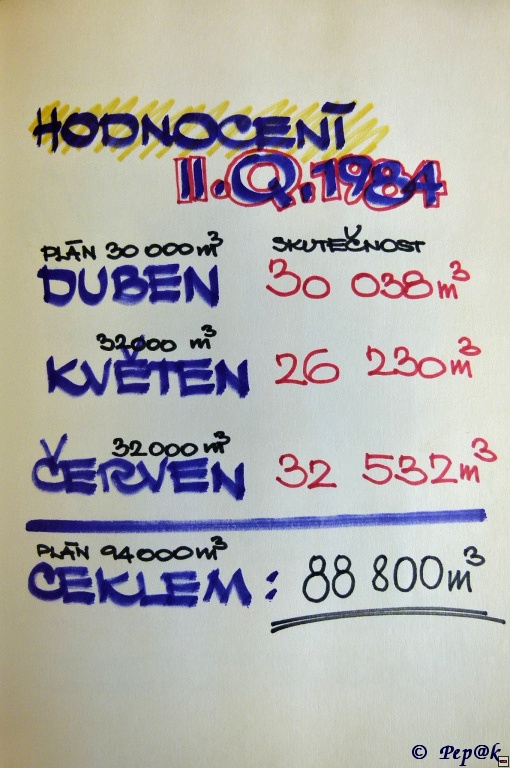 HODNOCENÍ
II.Q.1984
PLÁN 30 000 m³ SKUTEČNOST
DUBEN 30 038 m³
32000 m³
KVĚTEN 26 230 m³
32000 m³
ČERVEN 32 532 m³
PLÁN 94000 m³
CEKLEM: 88 800 m³
© Pep@k